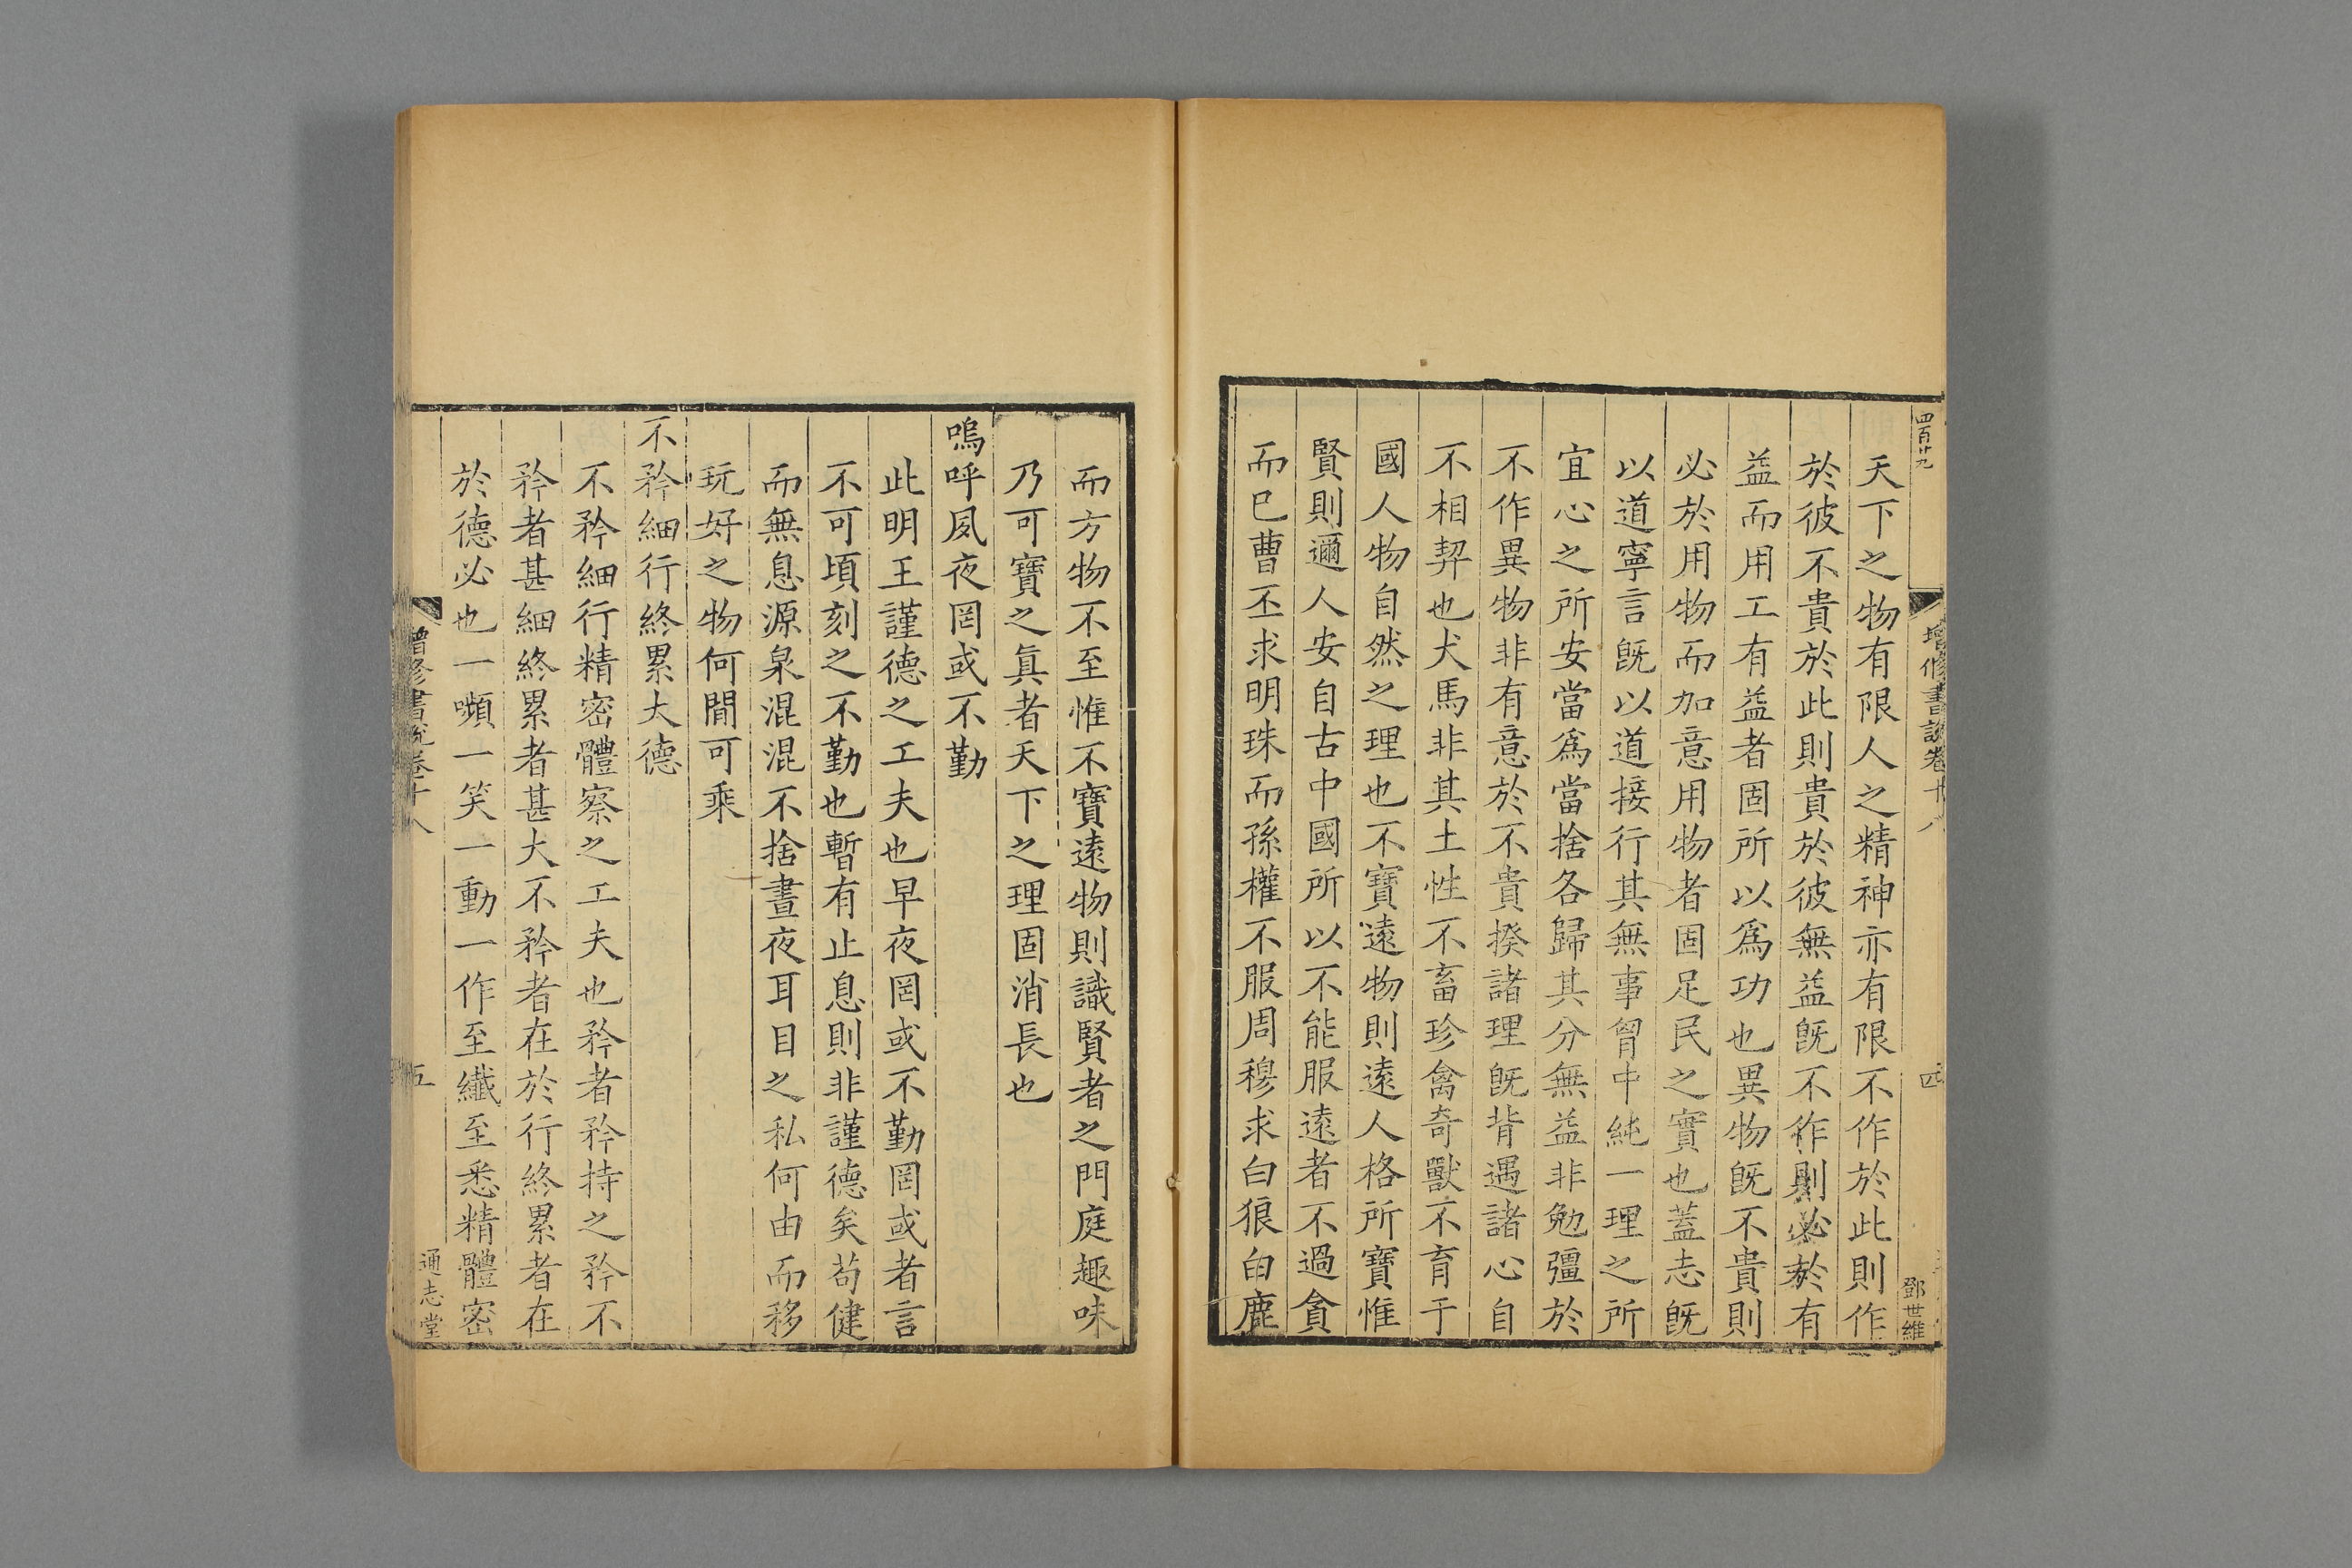 四百廿九
增修書說卷十八
四
鄧世維
天下之物有限人之精神亦有限不作於此則作
於彼不貴於此則貴於彼無益既不作則必於有
益而用工有益者固所以爲功也異物既不貴則
必於用物而加意用物者固足民之實也蓋志既
以道寧言既以道接行其無事胷中純一理之所
宜心之所安當爲當捨各歸其分無益非勉彊於
不作異物非有意於不貴揆諸理既背遇諸心自
不相契也犬馬非其土性不畜珍禽奇獸不育于
國人物自然之理也不寶遠物則遠人格所寶惟
賢則邇人安自古中國所以不能服遠者不過貪
而已曹丕求明珠而孫權不服周穆求白狼白鹿
而方物不至惟不寶遠物則識賢者之門庭趣味
乃可寶之眞者天下之理固消長也
嗚呼夙夜罔或不勤
此明王謹德之工夫也早夜罔或不勤罔或者言
不可頃刻之不勤也暫有止息則非謹德矣苟健
而無息源泉混混不捨晝夜耳目之私何由而移
玩好之物何間可乘
不矜細行終累大德
不矜細行精密體察之工夫也矜者矜持之矜不
矜者甚細終累者甚大不矜者在於行終累者在
於德必也一嚬一笑一動一作至纖至悉精體密
增修書說卷十八
五
通志堂